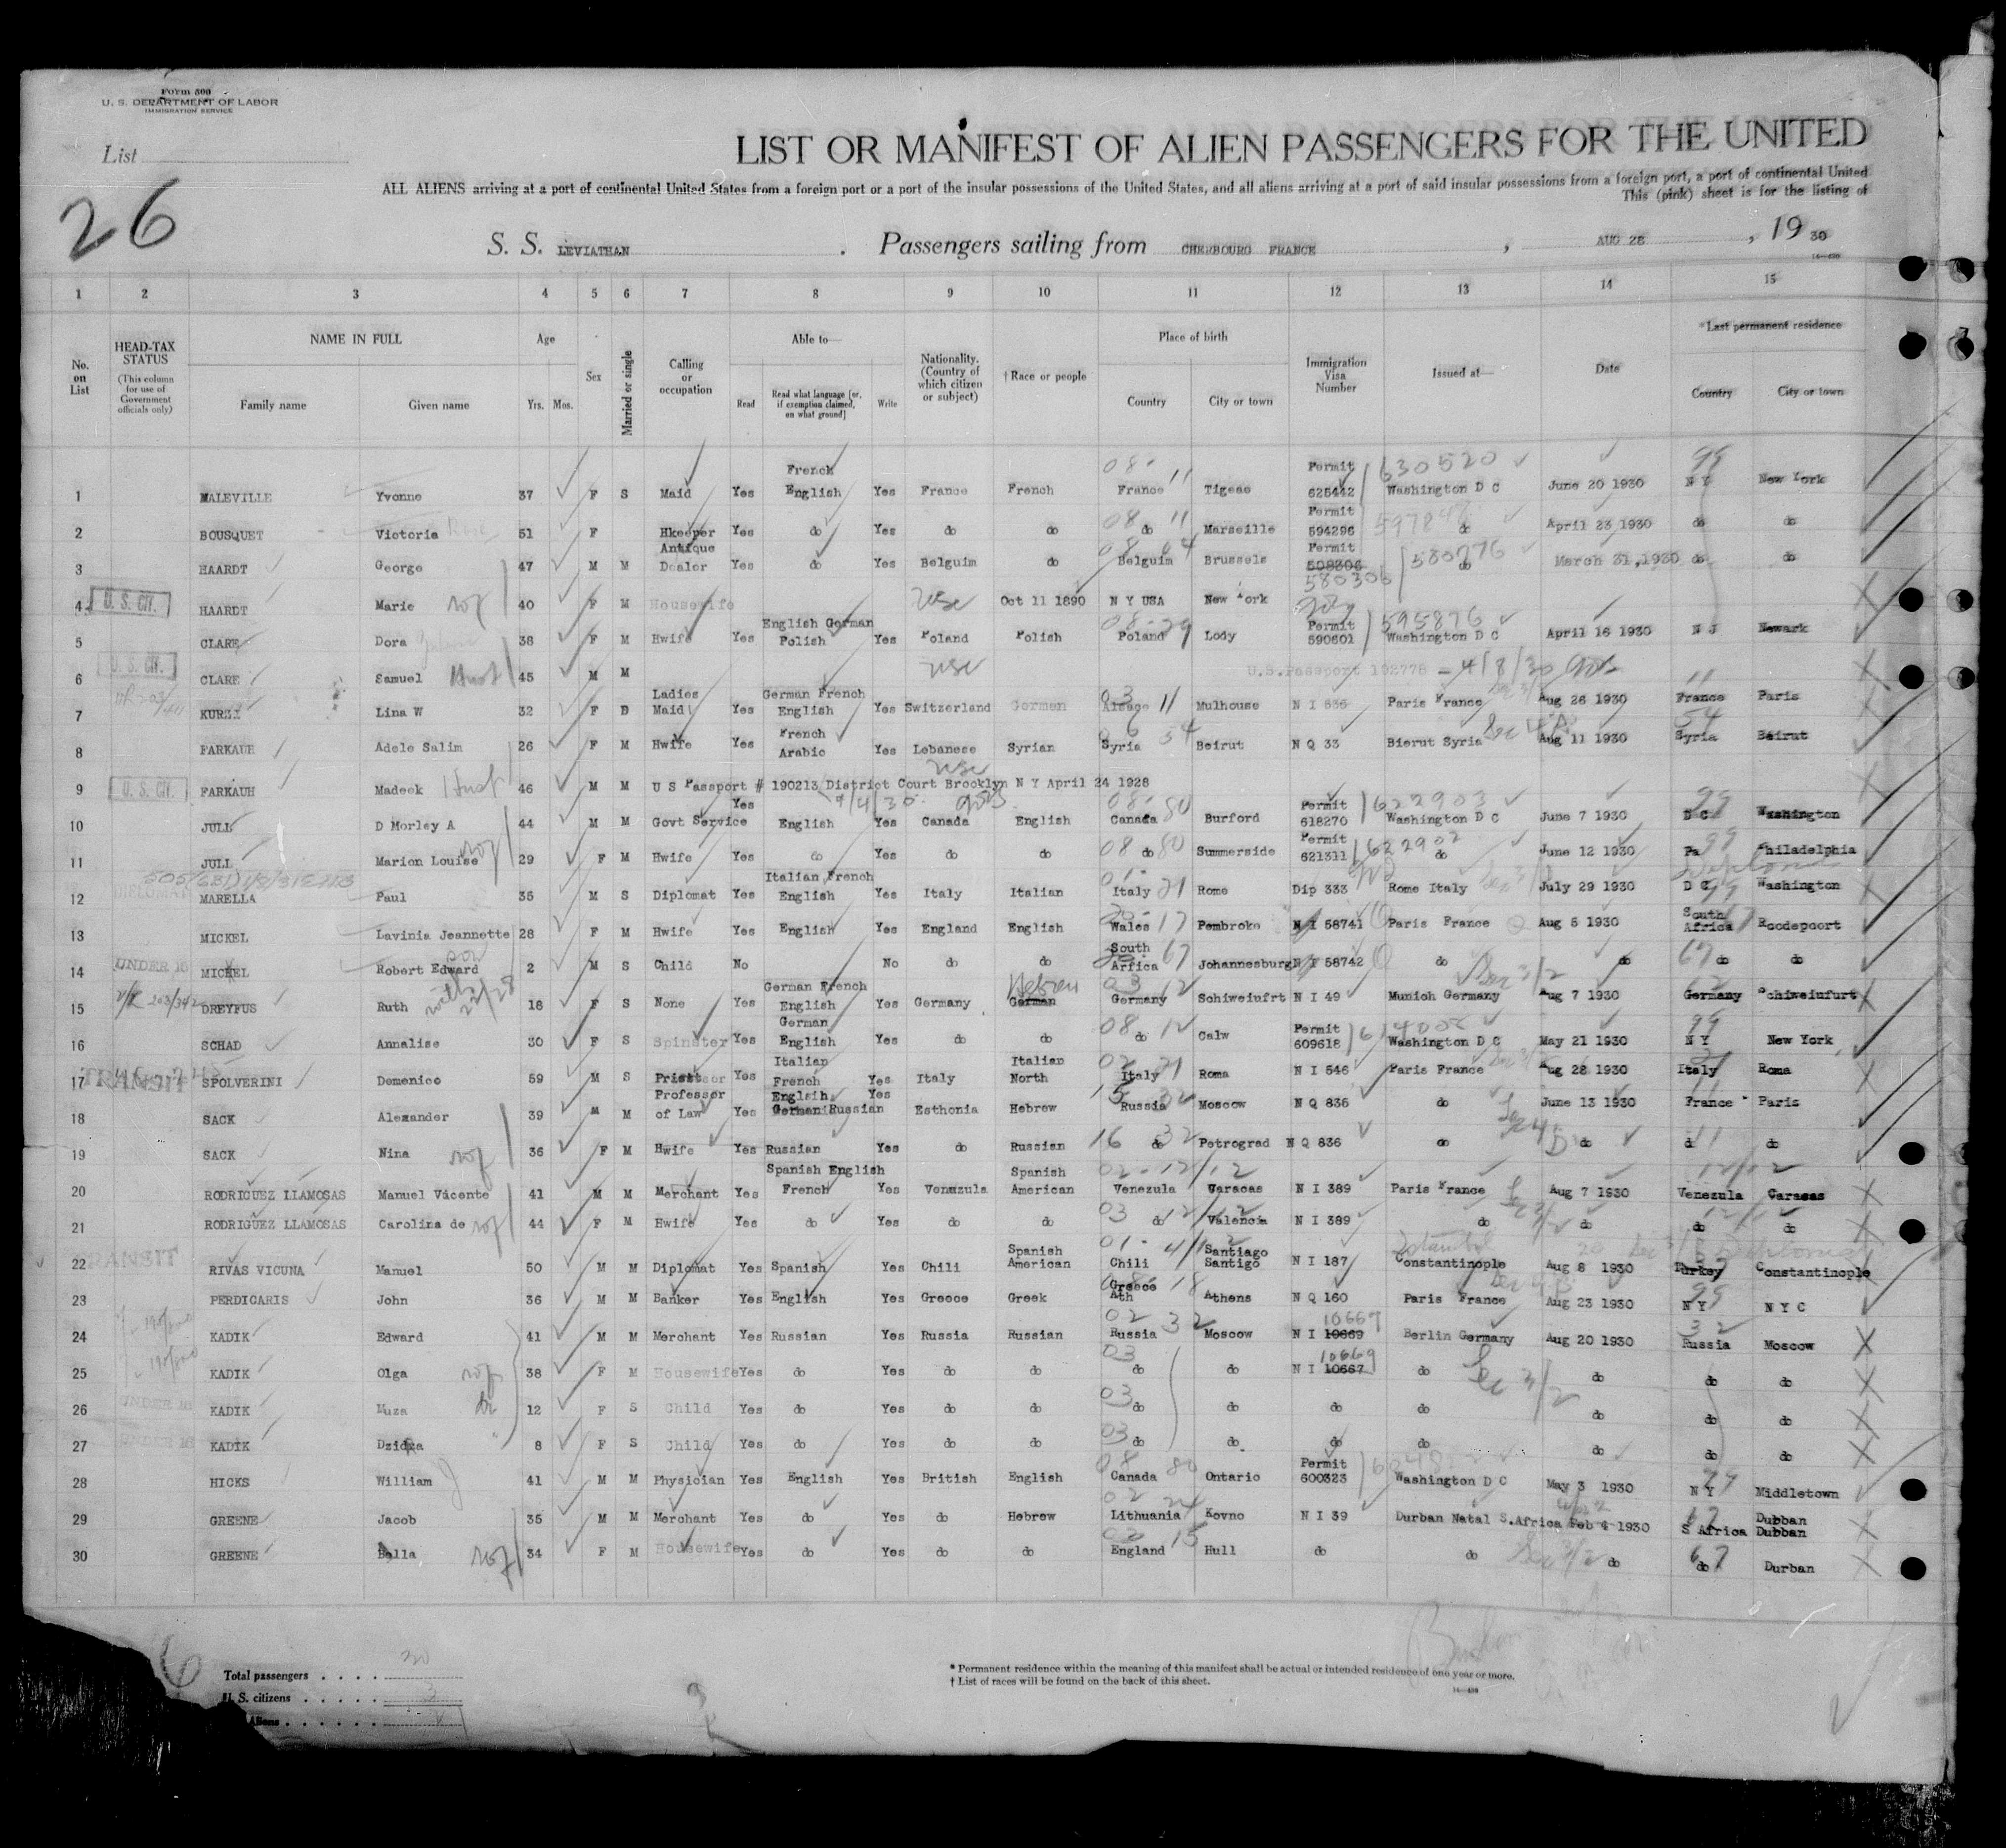 Form 500
U. S. DEPARTMENT OF LABOR
IMMIGRATION SERVICE
List
26
LIST OR MANIFEST OF ALIEN PASSENGERS FOR THE UNITED
ALL ALIENS arriving at a port of continental United States from a foreign port or a port of the insular possessions of the United States, and all aliens arriving at a port of said insular possessions from a foreign port, a port of continental United
This (pink) sheet is for the listing of
S. S. LEVIATHAN . Passengers sailing from CHERBOURG FRANCE , AUG 28 , 19 30
1 2 3 4 5 6 7 8 9 10 11 12 13 14 15
No. on List
HEAD-TAX STATUS (This column for use of Government officials only)
NAME IN FULL Family name Given name
Age Yrs. Mos.
Sex
Married or single
Calling or occupation
Able to— Read Read what language [or, if exemption claimed, on what ground] Write
Nationality. (Country of which citizen or subject)
† Race or people
Place of birth Country City or town
Immigration Visa Number
Issued at—
Date
*Last permanent residence Country City or town
1 MALEVILLE Yvonne 37 F S Maid Yes French English Yes France French 08- 11 France Tigeac Permit 625442 630520 Washington D C June 20 1930 99 N Y New York
2 BOUSQUET Victoria 51 F Hkeeper Yes do Yes do do 08 11 do Marseille Permit 594296 do April 23 1930 do do
3 HAARDT George 47 M M Antique Dealer Yes do Yes Belguim do Belguim Brussels Permit 508306 580306 580276 do March 31,1930 do do
4 U. S. CIT. HAARDT Marie wf 40 F M Housewife USC Oct 11 1890 N Y USA New York
5 CLARE Dora 38 F M Hwife Yes English German Polish Yes Poland Polish 08-29 Poland Lody Permit 590601 595876 Washington D C April 16 1930 N J Newark
6 U. S. CIT. CLARE Samuel Husb 45 M M USC U.S.Passport 192778 - 4/8/30
7 Lina W 32 F D Ladies Maid Yes German French English Yes Switzerland German 03 11 Alsace Mulhouse N I 636 Paris France Aug 26 1930 11 France Paris
8 FARKAUH Adele Salim 26 F M Hwife Yes French Arabic Yes Lebanese Syrian Syria Beirut N Q 33 Bierut Syria Sec 4 Aug 11 1930 54 Syria Beirut
9 U. S. CIT. FARKAUH Madeek Husb 46 M M USC U S Passport # 190213 District Court Brooklyn N Y April 24 1928
10 JULL D Morley A 44 M M Govt Service Yes English Yes Canada English 08- 80 Canada Burford Permit 618270 622903 Washington D C June 7 1930 99 D C Washington
11 JULL Marion Louise wf 29 F M Hwife Yes do Yes do do 08 80 do Summerside Permit 621311 622902 do June 12 1930 99 Pa Philadelphia
12 MARELLA Paul 35 M S Diplomat Yes Italian French English Yes Italy Italian 01- 21 Italy Rome Dip 333 Rome Italy July 29 1930 D C 99 Washington
13 MICKEL Lavinia Jeannette 28 F M Hwife Yes English Yes England English 17 Wales Pembroke N I 58741 Paris France Aug 5 1930 South Africa 67 Roodepoort
14 UNDER 16 MICKEL Robert Edward son 2 M S Child No No do do South Arfica 67 Johannesburg N I 58742 do do 67 do do
15 DREYFUS Ruth 18 F S None Yes German French English Yes Germany German Hebrew 03 12 Germany Schiweiufrt N I 49 Munich Germany Sec 3/2 Aug 7 1930 62 Germany Schiweiufurt
16 SCHAD Annalise 30 F S Spinster Yes German English Yes do do 08 12 do Calw Permit 609618 Washington D C May 21 1930 99 N Y New York
17 TRANSIT SPOLVERINI Domenico 59 M S Priest Yes Italian French English Yes Italy Italian North 02 21 Italy Roma N I 546 Paris France Aug 28 1930 21 Italy Roma
18 SACK Alexander 39 M M Professor of Law Yes German Russian Yes Esthonia Hebrew 15 32 Russia Moscow N Q 836 do June 13 1930 11 France Paris
19 SACK Nina wf 36 F M Hwife Yes Russian Yes do Russian 16 32 do Petrograd N Q 836 do do 11 do
20 RODRIGUEZ LLAMOSAS Manuel Vicente 41 M M Merchant Yes Spanish English French Yes Venuzula Spanish American 02-12/12 Venezula Caracas N I 389 Paris France Aug 7 1930 12/12 Venezula Caracas
21 RODRIGUEZ LLAMOSAS Carolina de wf 44 F M Hwife Yes do Yes do do 03 12/12 do Valencia N I 389 do Sec 3/2 do 12/12 do do
22 TRANSIT RIVAS VICUNA Manuel 50 M M Diplomat Yes Spanish Yes Chili Spanish American 01- 4/12 Chili Santiago Santigo N I 187 Istanbul Constantinople Aug 8 1930 Turkey Constantinople
23 PERDICARIS John 36 M M Banker Yes English Yes Greece Greek 08- 18 Greece Ath Athens N Q 160 Paris France Aug 23 1930 99 N Y N Y C
24 KADIK Edward 41 M M Merchant Yes Russian Yes Russia Russian 02 32 Russia Moscow N I 10669 10669 Berlin Germany Aug 20 1930 32 Russia Moscow
25 KADIK Olga wf 38 F M Housewife Yes do Yes do do 03 do do N I 10667 10669 do Sec 3/2 do do do
26 UNDER 16 KADIK Muza 12 F S Child Yes do Yes do do 03 do do do do do do do
27 UNDER 16 KADIK 8 F S Child Yes do Yes do do 03 do do do do do do do
28 HICKS William J 41 M M Physician Yes English Yes British English 08 80 Canada Ontario Permit 600323 Washington D C May 3 1930 99 N Y Middletown
29 GREENE Jacob 35 M M Merchant Yes do Yes do Hebrew 02 24 Lithuania Kovno N I 39 Durban Natal S.Africa Feb 4 1930 67 S Africa Dubban Dubban
30 GREENE Bella wf 34 F M Housewife Yes do Yes do do 03 15 England Hull do do Sec 3/2 do 67 do Durban
Total passengers . . . . 30
U. S. citizens . . . . . 3
Aliens . . . . . .
* Permanent residence within the meaning of this manifest shall be actual or intended residence of one year or more.
† List of races will be found on the back of this sheet.